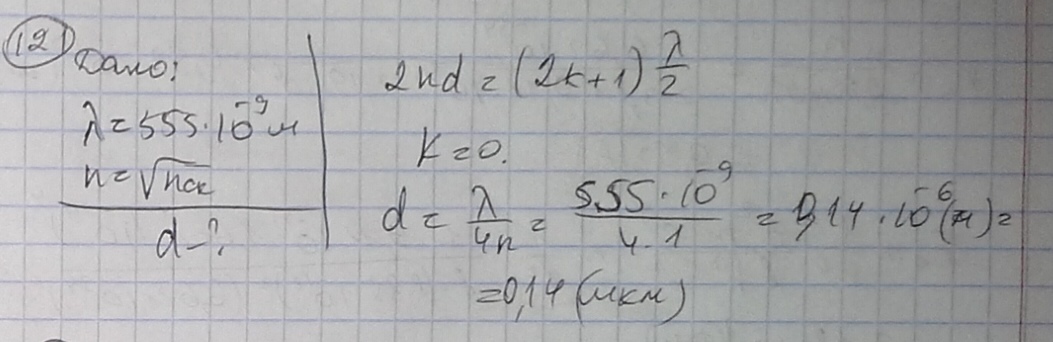 12) Дано:
λ = 555·10⁻⁹ м
n = √nск
d - ?
2nd = (2k+1) λ/2
k = 0.
d = λ/4n = 555·10⁻⁹/4·1 = 0,14·10⁻⁶ (м) =
= 0,14 (мкм)